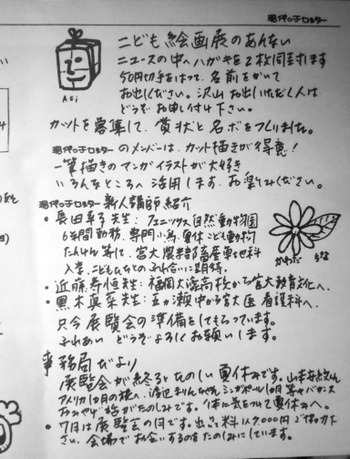 現代っ子センター
こども絵画展のあんない
ニュースの中へハガキを2枚同封します
50円切手をはって、名前をかいて
お出しください。沢山お出しいただく人は
どうぞお申し付け下さい。
Aoi
カットを募集して、賞状と名ボをつくりました。
現代っ子センターのメンバーは、カット描きが得意!
一筆描きのマンガイラストが大好き
いろんなところへ活用します、お望みください。
現代っ子センター新人講師紹介
・長田幸子先生:フェニックス自然動物園
6年間勤務、専門小鳥、夏休こども動物
たんけん等にて、宮大農学部畜産
入学、こどもひつじの ふれ合いに期待。
・近藤寿恒先生:福岡大濠高校から宮大教育文化へ。
・黒木真菜先生:五ヶ瀬中から宮大医看護科へ。
只今展覧会の準備をしてもらっています。
ふれあい どうぞよろしくお願いします。
かわだ
事務局だより
展覧会が終るとたのしい夏休みです。山本
アメリカ1カ月の旅へ、まりんちゃん シンガポール1カ月等々バカンス
がたのしみです。体に気をつけて夏休みへ。
・7月は展覧会の月です。出ごと料1,7000円ご協力下
さい、会場でお会いするのをたのしみにしています。